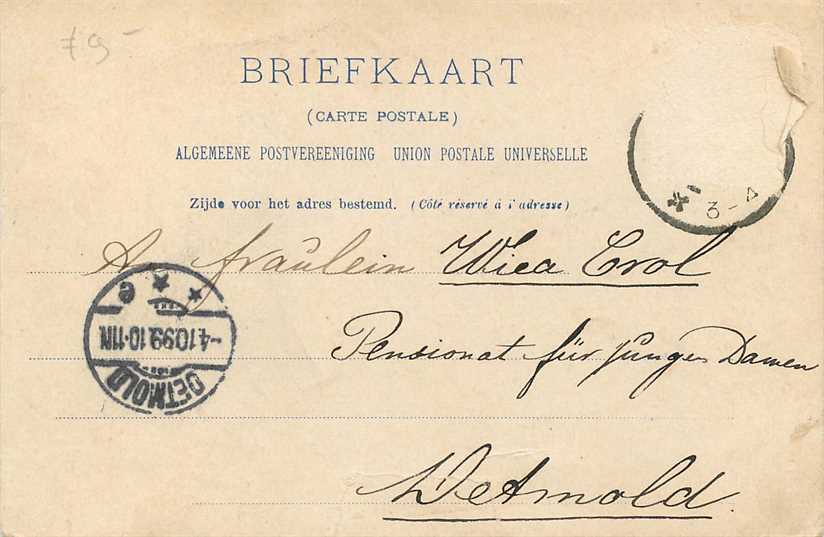 79-
BRIEFKAART
(CARTE POSTALE)
ALGEMEENE POSTVEREENIGING UNION POSTALE UNIVERSELLE
Zijde voor het adres bestemd. (Côté réservé à l'adresse)
3-4
An fraülein Wiea Crol
DETMOLD
-4.10.99.10-11N.
* * e
Pensionat für junges Damen
Detmold.